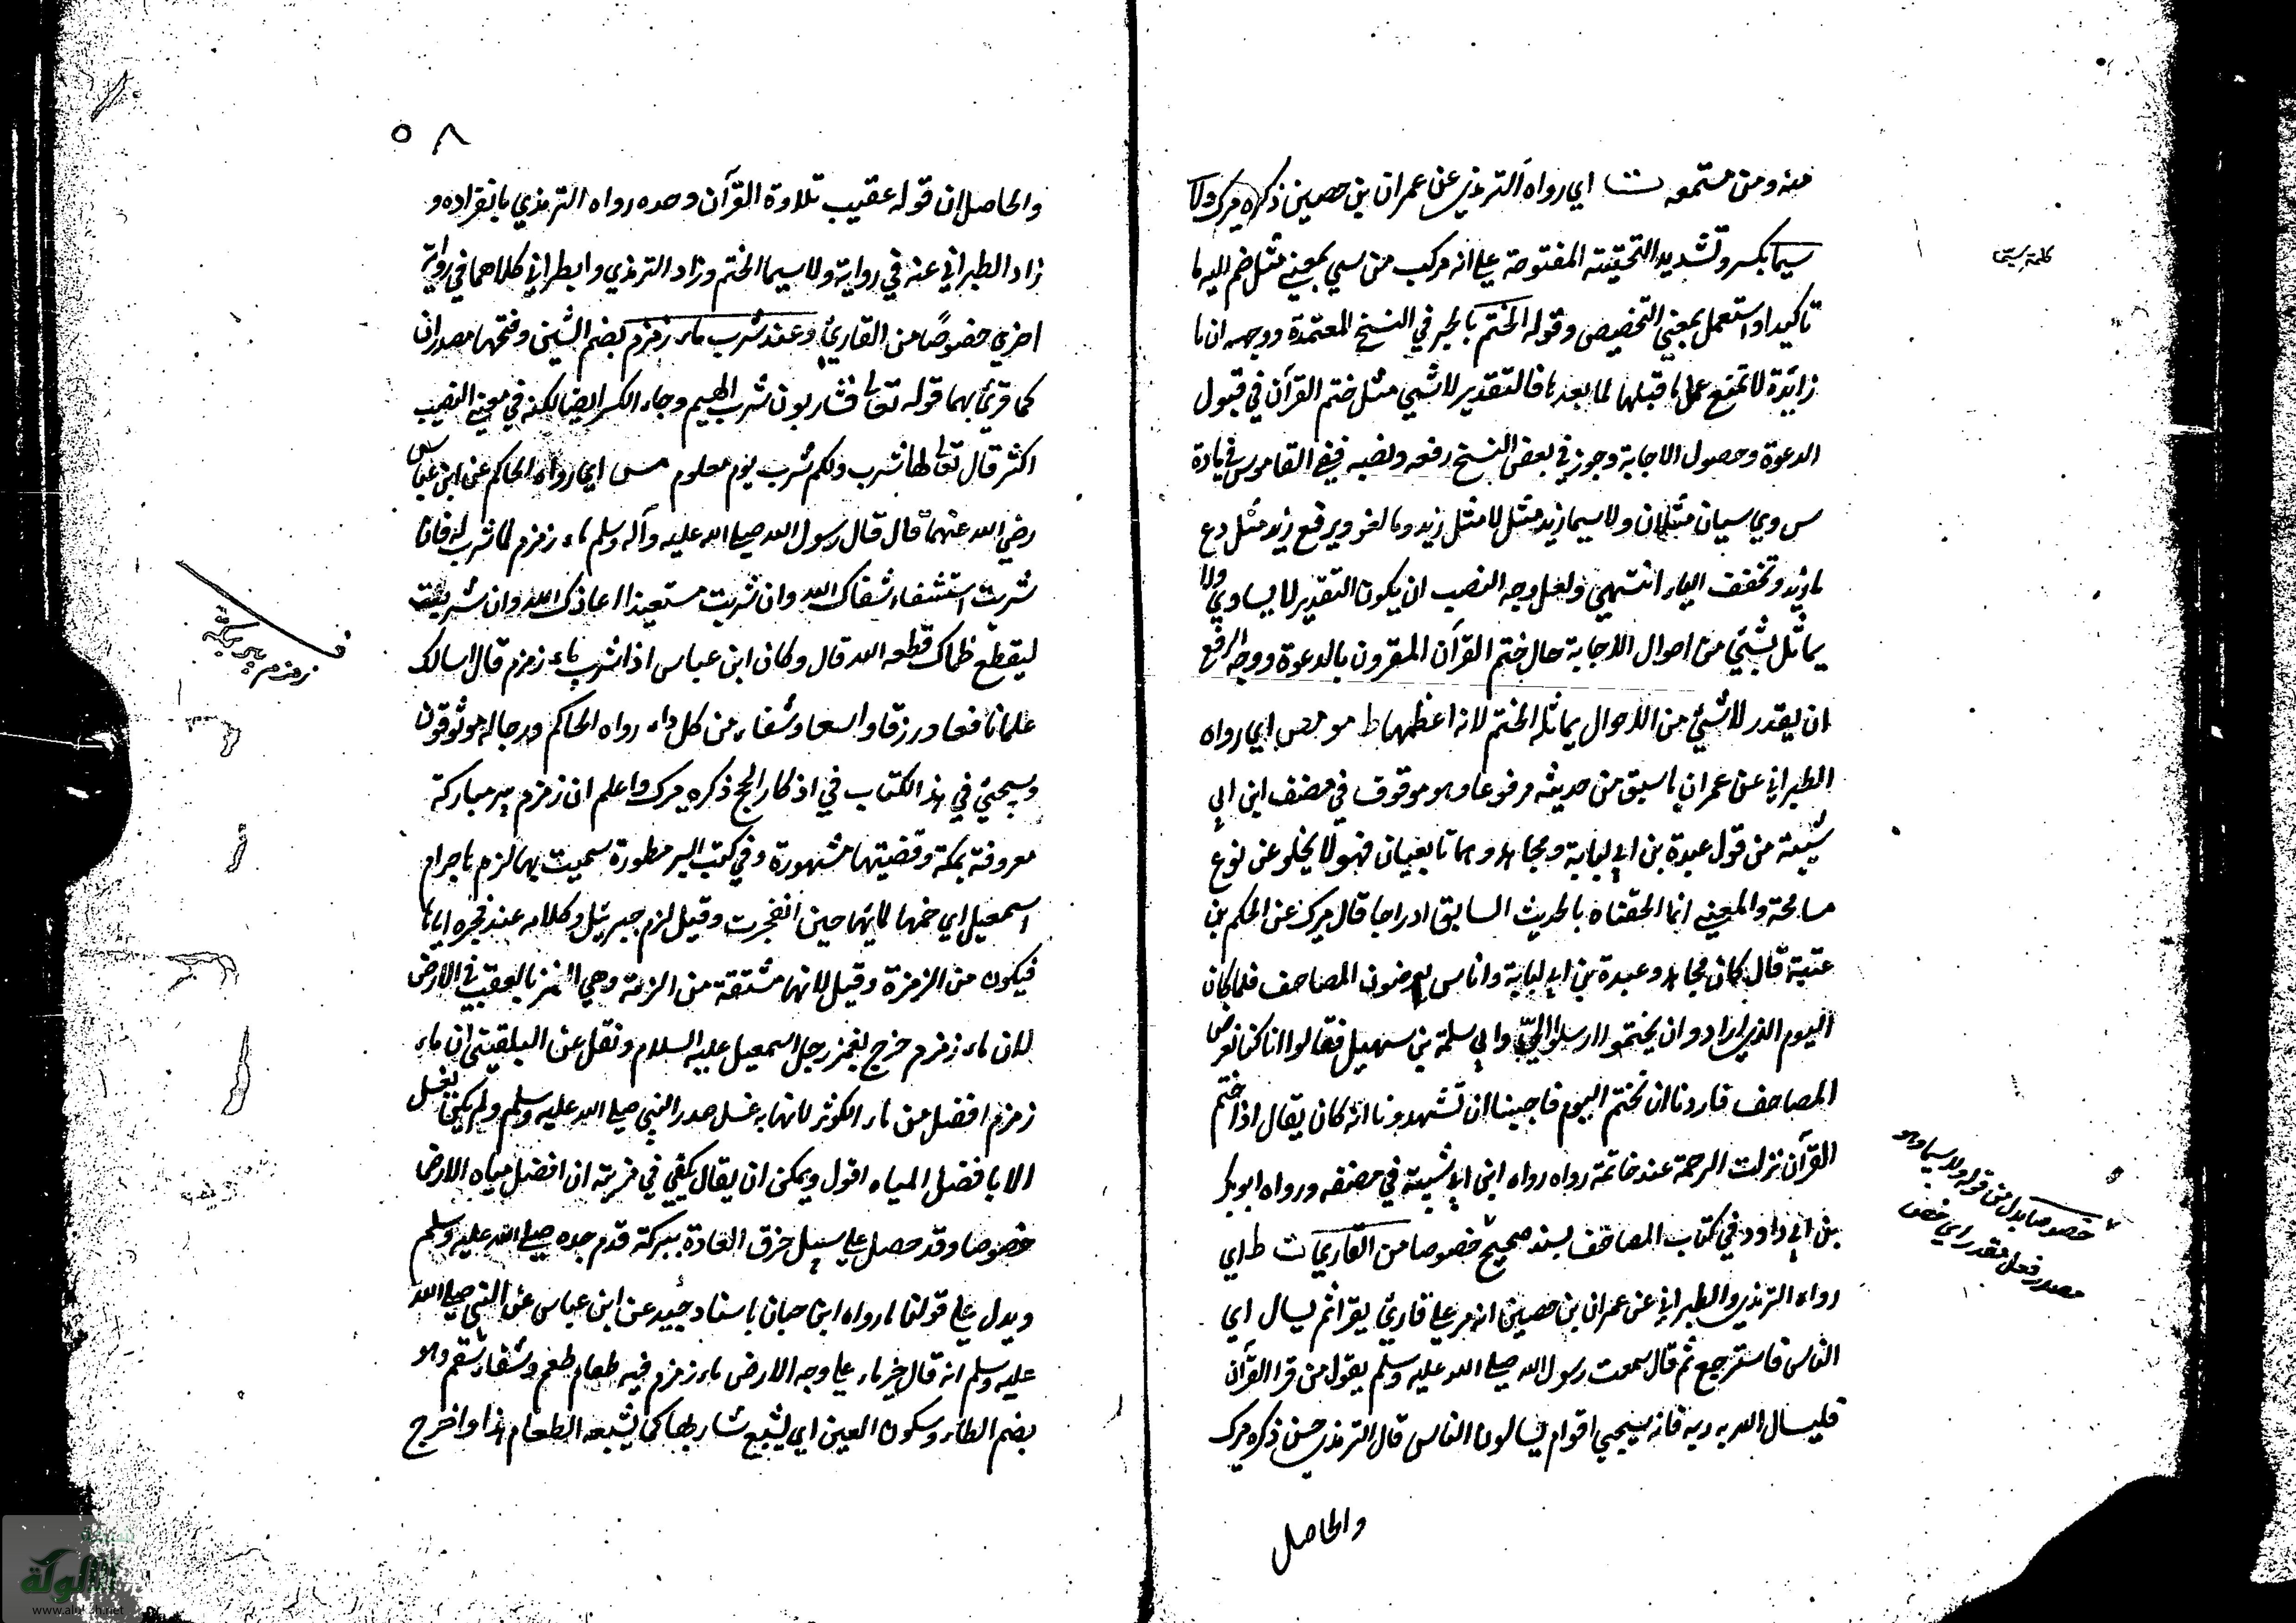 منه ومن مستمعه ت اي رواه الترمذي عن عمران بن حصين ذكره ميرك ولا
سيما بكسر وتشديد التحتية المفتوحة على انه مركب من سي بمعنى مثل ضم اليه ما
تاكيدا واستعمل بمعنى التخصيص وقوله الختم بالجر في النسخ المعتمدة ووجهه ان ما
زايدة لا تمنع عمل ما قبلها لما بعدها فالتقدير لا شي مثل ختم القرآن في قبول
الدعوة وحصول الاجابة وجوز في بعض النسخ رفعه ونصبه ففي القاموس في مادة
س وي سيان مثلان ولا سيما زيد مثل لا مثل زيد وما لغو ويرفع زيد مثل دع
ما زيد وتخفف الياء انتهى ولعل وجه النصب ان يكون التقدير لا يساوي ولا
يماثل لشيئ من احوال الاجابة حال ختم القرآن المقرون بالدعوة ووجه الرفع
ان يقدر لا شيئ من الاحوال يماثله الختم لانه اعظمها ط مو مص اي رواه
الطبراني عن عمران ما سبق من حديثه مرفوعا وهو موقوف في مصنف ابن ابي
شيبة من قول عبدة بن ابي لبابة ومجاهد وهما تابعيان فهو لا يخلو عن نوع
مسامحة والمعنى انما الحقناه بالحديث السابق ادراجا قال ميرك عن الحكم بن
عتبة قال كان مجاهد وعبدة بن ابي لبابة واناس يعرضون المصاحف فلما كان
اليوم الذي ارادوا ان يختموا ارسلوا الي والي سلمة بن سهيل فقالوا انا كنا نعرض
المصاحف فاردنا ان نختم اليوم فاحببنا ان تشهدونا انه كان يقال اذا ختم
القرآن نزلت الرحمة عند خاتمة رواه رواه ابن ابي شيبة في مصنفه ورواه ابو بكر
بن ابي داود في كتاب المصاحف بسند صحيح خصوصا من القاري ت ط اي
رواه الترمذي والطبراني عن عمران بن حصين انه مر على قارئ يقرا ثم يسال اي
الناس فاسترجع ثم قال سمعت رسول الله صلى الله عليه وسلم يقول من قرا القرآن
فليسال الله به ربه فانه سيجيي اقوام يسالون الناس قال الترمذي حسن ذكره ميرك
والحاصل
خصوصا بدل من قوله ولا سيما وهو
مصدر فعل مقدر اي خص
٥٨
والحاصل ان قوله عقيب تلاوة القرآن وحده رواه الترمذي بانفراده و
زاد الطبراني عنه في رواية ولا سيما الختم وزاد الترمذي والطبراني كلاهما في رواية
اخرى خصوصًا من القارئ وعند شرب ماء زمزم بضم الشين وفتحها مصدران
كما قرئ بهما قوله تعالى فشاربون شرب الهيم وجاء الكسر ايضا لكنه في معنى النصيب
اكثر قال تعالى لها شرب ولكم شرب يوم معلوم مس اي رواه الحاكم عن ابن عباس
رضي الله عنهما قال قال رسول الله صلى الله عليه وآله وسلم ماء زمزم لما شرب له فان
شربت استشفاء شفاك الله وان شربت مستعيذا اعاذك الله وان شربت
ليقطع ظماك قطعه الله قال وكان ابن عباس اذا شرب ماء زمزم قال اسالك
علما نافعا ورزقا واسعا وشفاء من كل داء رواه الحاكم ورجاله موثوقون
وسيجئ في هذا الكتاب في اذكار الحج ذكره ميرك واعلم ان زمزم بير مباركة
معروفة بمكة وقضيتها مشهورة وفي كتب السير مسطورة سميت بها لزم هاجر ام
اسمعيل اي ضمها لمائها حين انفجرت وقيل لزم جبرئيل وكلامه عند فجره اياها
فيكون من الزمزة وقيل لانها مشتقة من الزمة وهي الهمز بالعقب في الارض
لان ماء زمزم خرج بغمز رجل اسمعيل عليه السلام ونقل عن البلقيني ان ماء
زمزم افضل من ماء الكوثر لانها به غسل صدر النبي صلى الله عليه وسلم ولم يكن يغسل
الا بافضل المياه اقول ويمكن ان يقال يكفي في مزيته ان افضل مياه الارض
خصوصا وقد حصل على سبيل خرق العادة ببركة قدم جده صلى الله عليه وسلم
ويدل على قولنا ما رواه ابن حبان باسناد جيد عن ابن عباس عن النبي صلى الله
عليه وسلم انه قال خير ماء على وجه الارض ماء زمزم فيه طعام طعم وشفاء سقم وهو
بضم الطاء وسكون العين اي يشبع شاربها كما يشبعه الطعام هذا واخرج
الالوكة
www.alukah.net